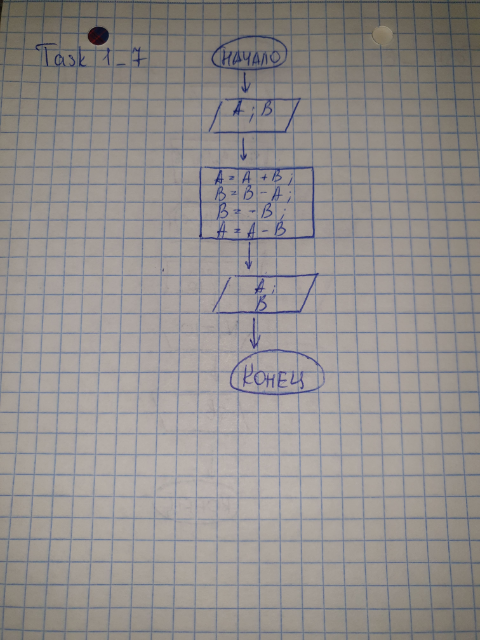 Task 1_7
НАЧАЛО
A ; B
A = A + B ;
B = B - A ;
B = - B ;
A = A - B
A ;
B
КОНЕЦ